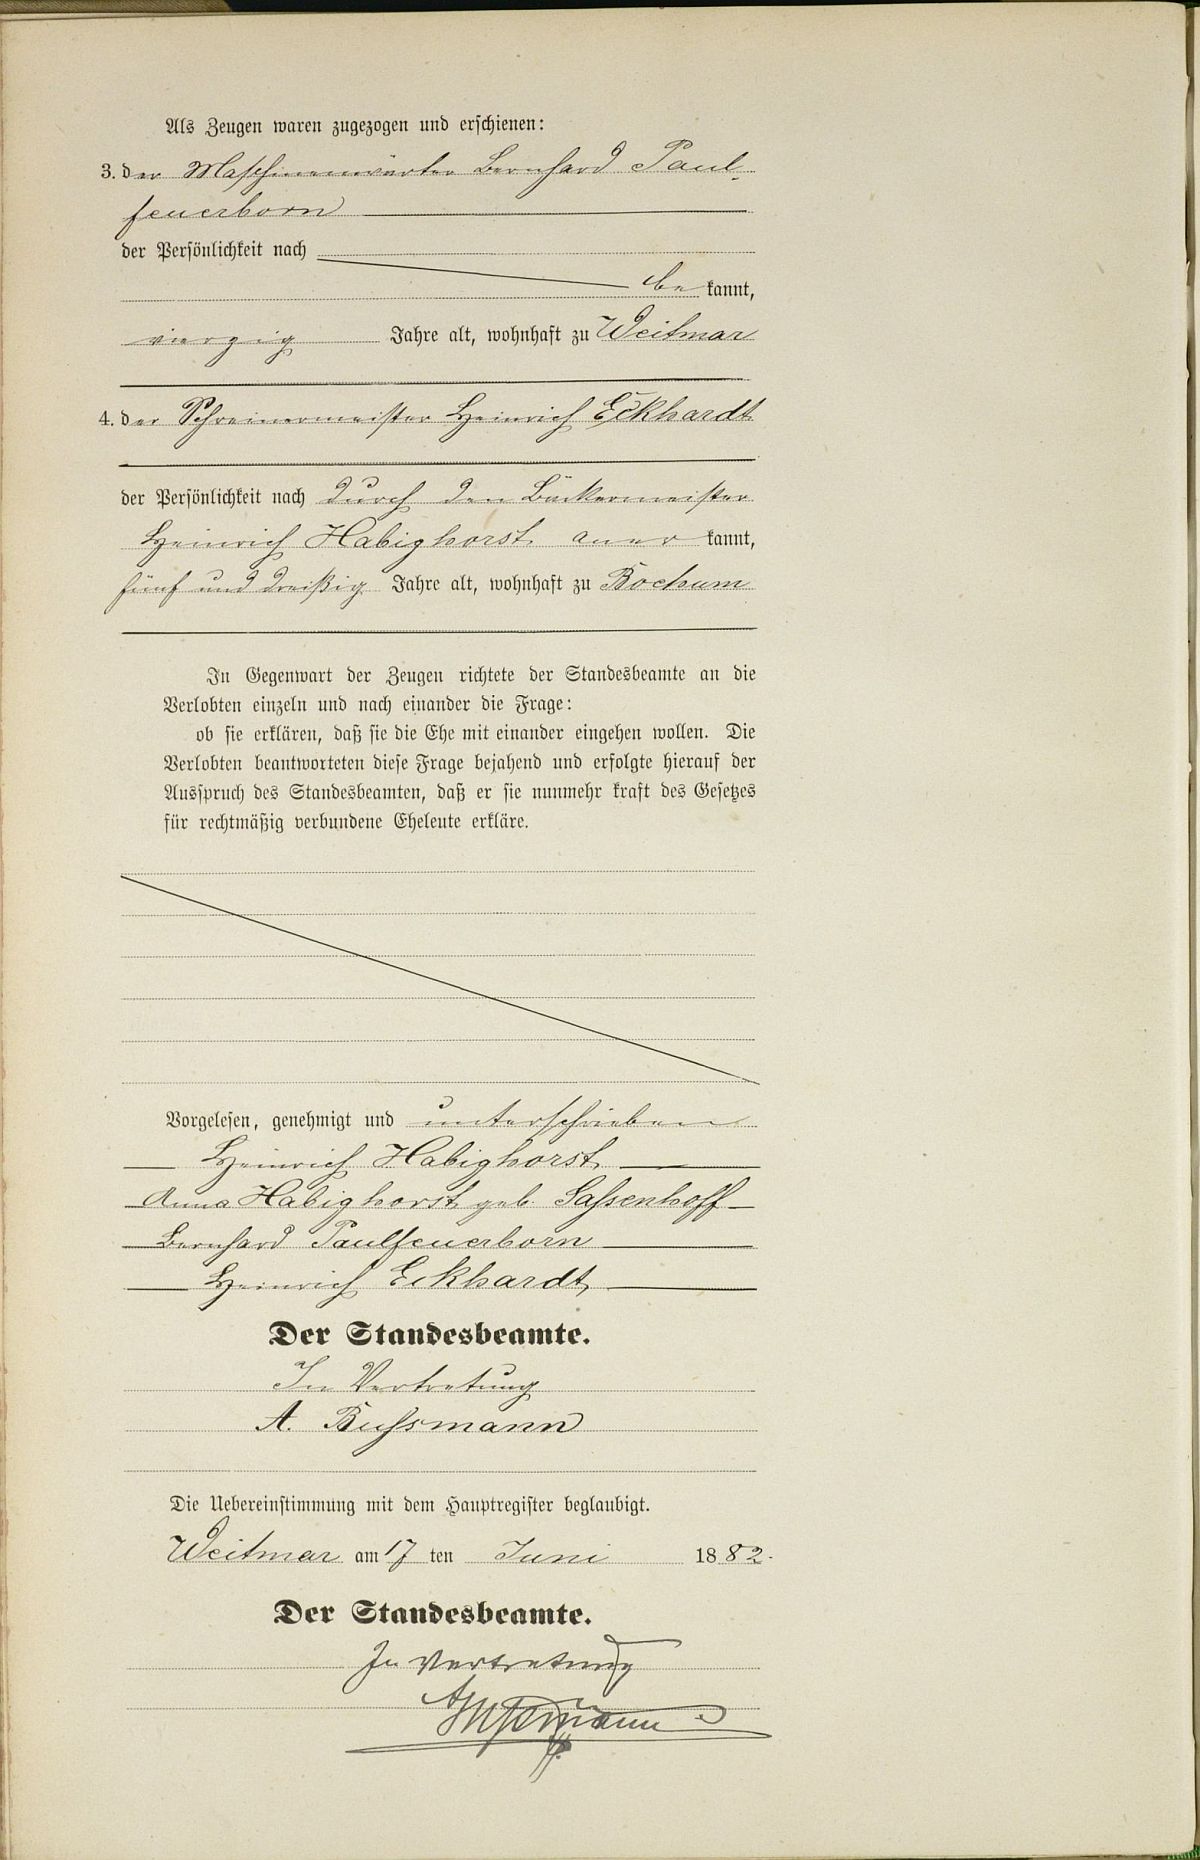 Als Zeugen waren zugezogen und erschienen:
3. der Maschinenwärter Bernhard Paul-
feuerborn
der Persönlichkeit nach
be kannt,
vierzig Jahre alt, wohnhaft zu Weitmar
4. der Schreinermeister Heinrich Eckhardt
der Persönlichkeit nach durch den Bäckermeister
Heinrich Habighorst aner kannt,
fünf und dreißig Jahre alt, wohnhaft zu Bochum
In Gegenwart der Zeugen richtete der Standesbeamte an die
Verlobten einzeln und nach einander die Frage:
ob sie erklären, daß sie die Ehe mit einander eingehen wollen. Die
Verlobten beantworteten diese Frage bejahend und erfolgte hierauf der
Ausspruch des Standesbeamten, daß er sie nunmehr kraft des Gesetzes
für rechtmäßig verbundene Eheleute erkläre.
Vorgelesen, genehmigt und unterschrieben
Heinrich Habighorst
Anna Habighorst geb. Sassenhoff
Bernhard Paulfeuerborn
Heinrich Eckhardt
Der Standesbeamte.
In Vertretung
A. Bussmann
Die Uebereinstimmung mit dem Hauptregister beglaubigt.
Weitmar am 17 ten Juni 1882.
Der Standesbeamte.
In Vertretung
ABussmann